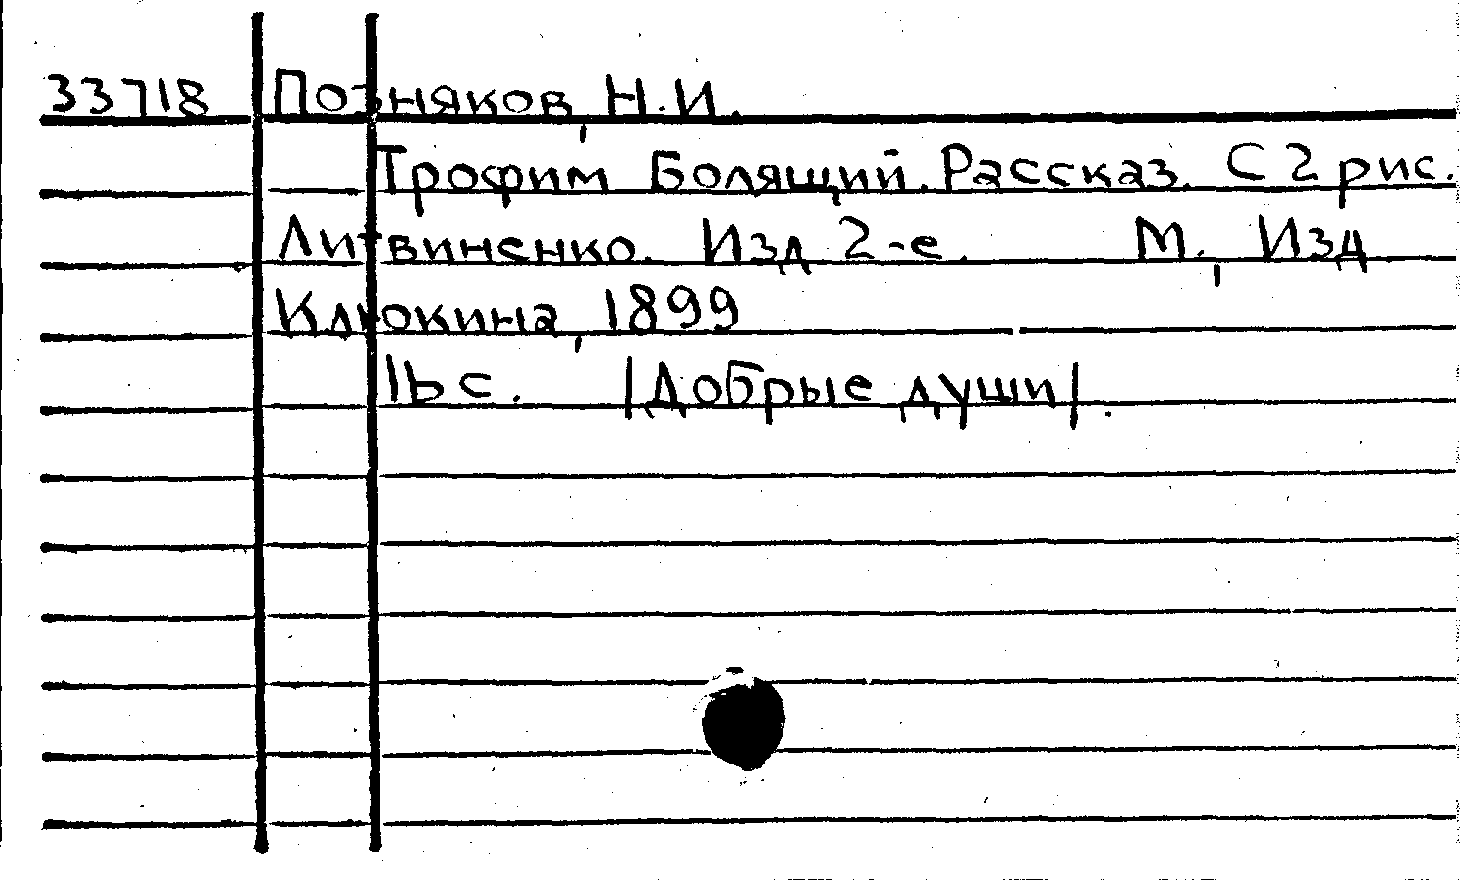 33718 Позняков, Н.И.
Трофим Болящий. Рассказ. С 2 рис.
Литвиненко. Изд 2-е. М., Изд
Клюкина, 1899
16 с. |Добрые души|.